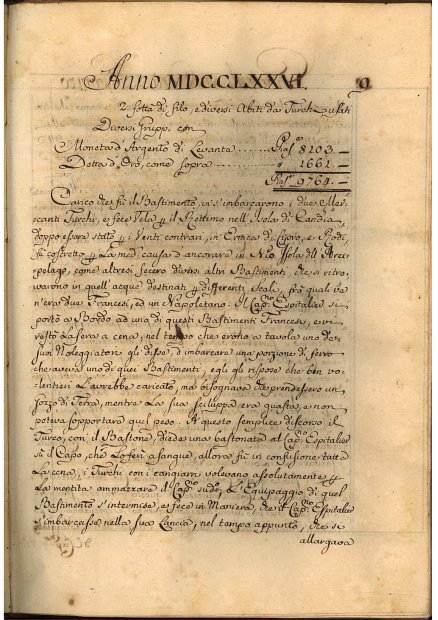 Anno MDCCLXXVI. 9
2 sotta di filo, e diversi Abiti da Turchi usati
Diversi Gruppi con
Moneta d'Argento di Levante Pias. 8103.—
Detta d'Oro, come sopra " 1661.—
Pias. 9764.—
Carico che fù il Bastimento, vi s'imbarcarono i due Mer-
canti Turchi, e fece Vela p il Rettimo nell'Isola di Candia,
doppo essere stato p i Venti contrari, in Ernica di Cipro, e Rodi,
fù costretto p La med. causa d'ancorare in Nio Isola dell'Arci-
pelago, come altresì fecero diversi altri Bastimenti, che si ritro-
vavono in quell'acque destinati p differenti Scali, frà quali ve
n'era due Francesi, ed un Napoletano. Il Cap. Espitalier si
portò a Bordo ad uno di questi Bastimenti Francesi, e vi
restò La sera a cena, nel tempo che erono a tavola uno de
suoi Noleggiatori gli disse, d'imbarcare una porzione di ferro
che aveva uno di quei Bastimenti, egli gli rispose che ben vo-
lentieri L'avrebbe caricato, ma bisognava che prendessero un
pozzo di Terra, mentre La sua scialuppa era guasta, e non
poteva sopportare quel peso. A questo semplice discorso il
Turco, con il Bastone, diede una bastonata al Cap. Espitalier
sù il Capo, che Lo ferì a sangue, allora fù in confusione tutta
La cena, i Turchi con i cangiarri volevano assolutamente p
La mentita ammazzare il Cap. sud., L'Equipaggio di quel
Bastimento s'intermise, e fece in Maniera, che il Cap. Espitalier
s'imbarcasse nella sua Lancia, nel tempo appunto, che si
allargava